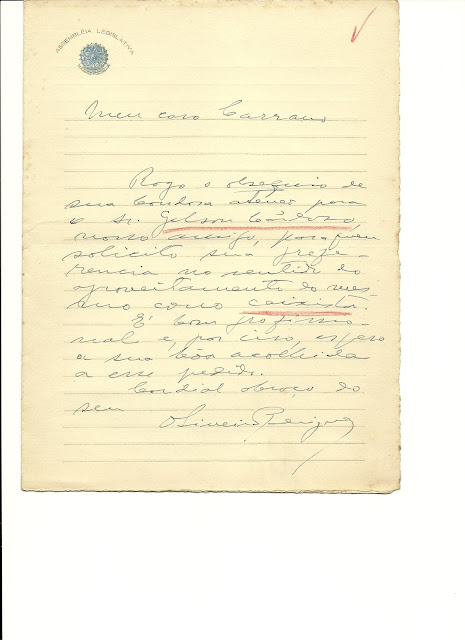 ASSEMBLÉIA LEGISLATIVA
Meu caro Carrano
Rogo o obsequio de
sua bondosa atenção para
o sr. Gelson Cardoso,
nosso amigo, para quem
solicito sua prefe-
rencia no sentido do
aproveitamento do mes-
mo como caixista.
É bom profissio-
nal e, por isso, espero
a sua bôa acolhida
a esse pedido.
Cordial abraço do
seu
Oliveira